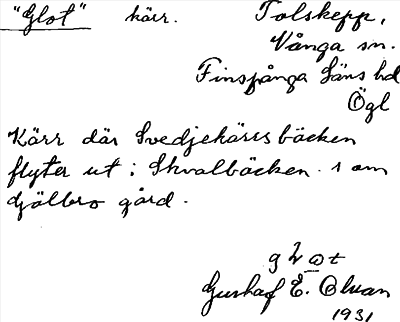 "Glot" kärr. Tolskepp,
Vånga sn.
Finspånga läns hd
Ögl
Kärr där Svedjekärrsbäcken
flyter ut i Skvalbäcken. s om
djälbro gård.
Gustaf E.
1931